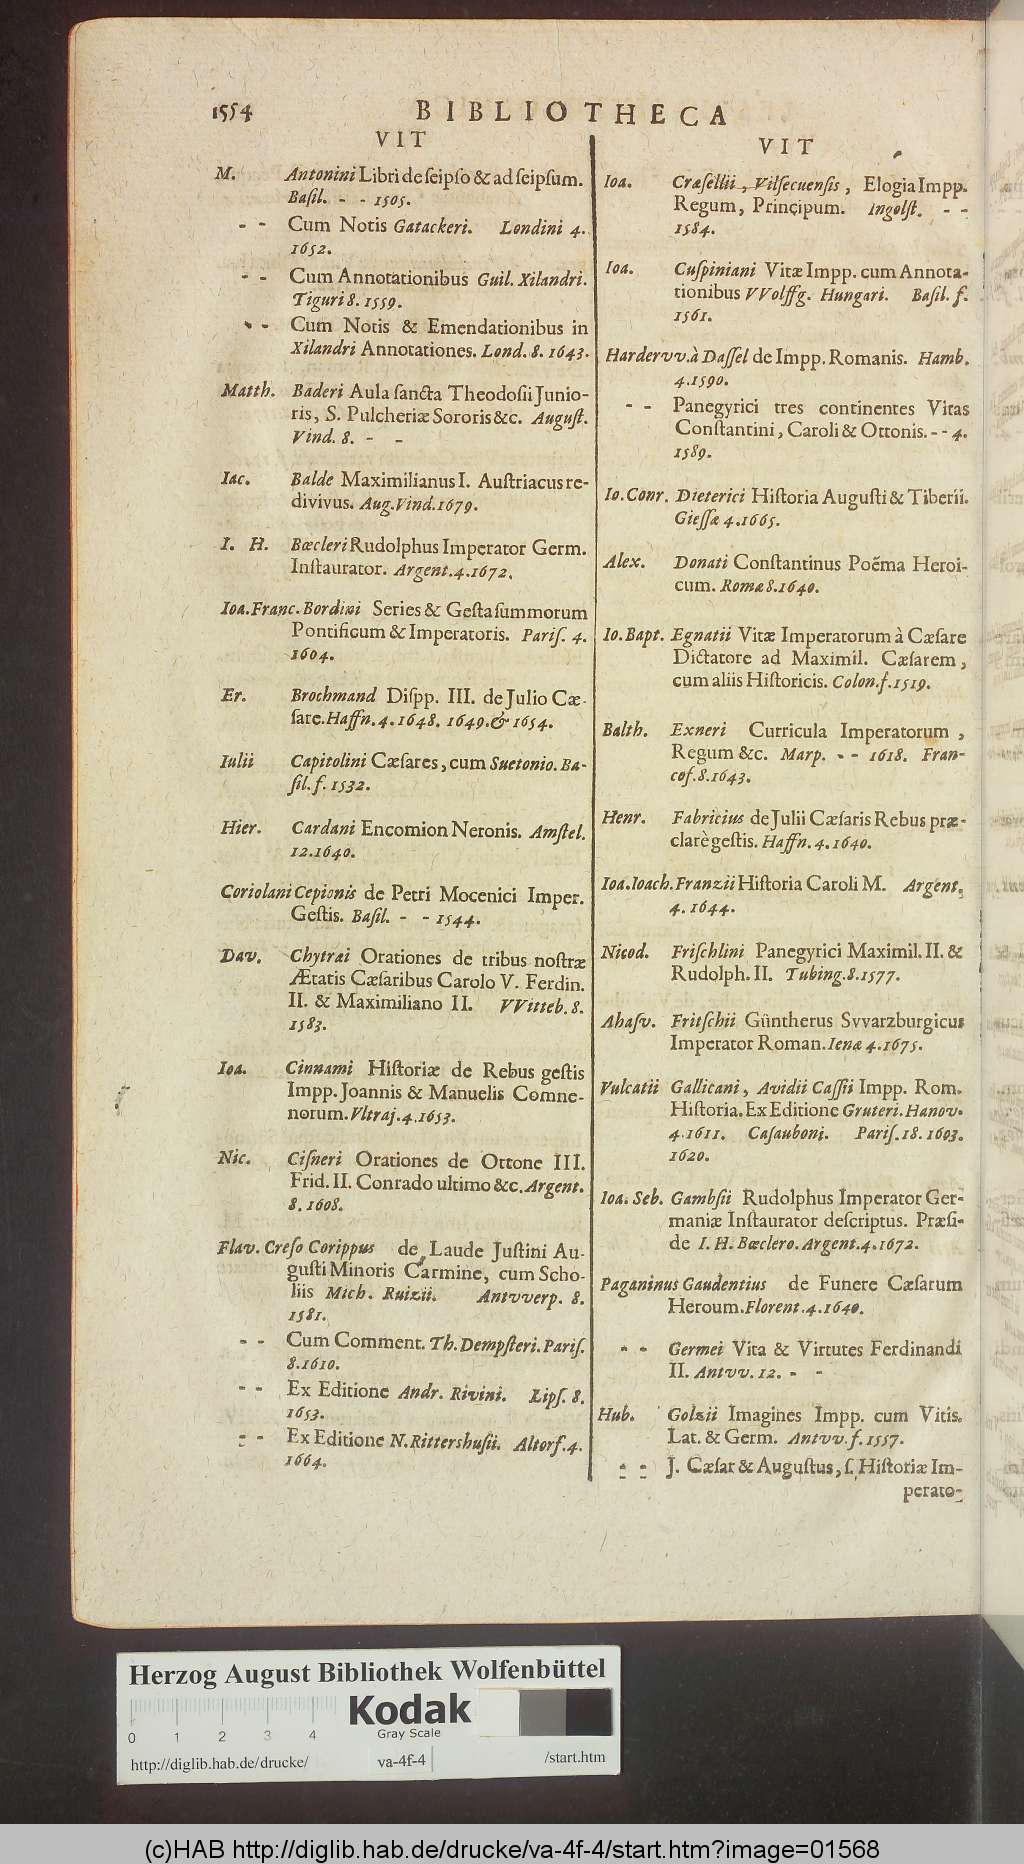 1554
BIBLIOTHECA
VIT
M. Antonini Libri de ſeipſo & ad ſeipſum.
Baſil. - - 1505.
- - Cum Notis Gatackeri. Londini 4.
1652.
- - Cum Annotationibus Guil. Xilandri.
Tiguri 8. 1559.
- - Cum Notis & Emendationibus in
Xilandri Annotationes. Lond. 8. 1643.
Matth. Baderi Aula ſancta Theodoſii Junio-
ris, S. Pulcheriæ Sororis &c. Auguſt.
Vind. 8. - -
Iac. Balde Maximilianus I. Auſtriacus re-
divivus. Aug. Vind. 1679.
I. H. Bœcleri Rudolphus Imperator Germ.
Inſtaurator. Argent. 4. 1672.
Ioa. Franc. Bordini Series & Geſta ſummorum
Pontificum & Imperatoris. Pariſ. 4.
1604.
Er. Brochmand Diſpp. III. de Julio Cæ-
ſare. Haffn. 4. 1648. 1649. & 1654.
Iulii Capitolini Cæſares, cum Suetonio. Ba-
ſil. f. 1532.
Hier. Cardani Encomion Neronis. Amſtel.
12. 1640.
Coriolani Cepionis de Petri Mocenici Imper.
Geſtis. Baſil. - - 1544.
Dav. Chytræi Orationes de tribus noſtræ
Ætatis Cæſaribus Carolo V. Ferdin.
II. & Maximiliano II. VVitteb. 8.
1583.
Ioa. Cinnami Hiſtoriæ de Rebus geſtis
Impp. Joannis & Manuelis Comne-
norum. Vltraj. 4. 1653.
Nic. Ciſneri Orationes de Ottone III.
Frid. II. Conrado ultimo &c. Argent.
8. 1608.
Flav. Creſo Corippus de Laude Juſtini Au-
guſti Minoris Carmine, cum Scho-
liis Mich. Ruizii. Antvverp. 8.
1581.
- - Cum Comment. Th. Dempſteri. Pariſ.
8. 1610.
- - Ex Editione Andr. Rivini. Lipſ. 8.
1653.
- - Ex Editione N. Rittershuſii. Altorf. 4.
1664.
VIT
Ioa. Cræſellii, Vilſecuenſis, Elogia Impp.
Regum, Principum. Ingolſt. - -
1584.
Ioa. Cuſpiniani Vitæ Impp. cum Annota-
tionibus VVolffg. Hungari. Baſil. f.
1561.
Hardervv. à Daſſel de Impp. Romanis. Hamb.
4. 1590.
- - Panegyrici tres continentes Vitas
Conſtantini, Caroli & Ottonis. - - 4.
1589.
Io. Conr. Dieterici Hiſtoria Auguſti & Tiberii.
Gieſſæ 4. 1665.
Alex. Donati Conſtantinus Poëma Heroi-
cum. Romæ 8. 1640.
Io. Bapt. Egnatii Vitæ Imperatorum à Cæſare
Dictatore ad Maximil. Cæſarem,
cum aliis Hiſtoricis. Colon. f. 1519.
Balth. Exneri Curricula Imperatorum,
Regum &c. Marp. - - 1618. Fran-
cof. 8. 1643.
Henr. Fabricius de Julii Cæſaris Rebus præ-
clarè geſtis. Haffn. 4. 1640.
Ioa. Ioach. Franzii Hiſtoria Caroli M. Argent.
4. 1644.
Nicod. Friſchlini Panegyrici Maximil. II. &
Rudolph. II. Tubing. 8. 1577.
Ahaſv. Fritſchii Güntherus Svvarzburgicus
Imperator Roman. Ienæ 4. 1675.
Vulcatii Gallicani, Avidii Caſſii Impp. Rom.
Hiſtoria. Ex Editione Gruteri. Hanov.
4. 1611. Caſauboni. Pariſ. 18. 1603.
1620.
Ioa. Seb. Gambſii Rudolphus Imperator Ger-
maniæ Inſtaurator deſcriptus. Præſi-
de I. H. Bœclero. Argent. 4. 1672.
Paganinus Gaudentius de Funere Cæſarum
Heroum. Florent. 4. 1640.
- - Germei Vita & Virtutes Ferdinandi
II. Antvv. 12. - -
Hub. Golzii Imagines Impp. cum Vitis.
Lat. & Germ. Antvv. f. 1557.
- - J. Cæſar & Auguſtus, ſ. Hiſtoriæ Im-
perato-
Herzog August Bibliothek Wolfenbüttel
Kodak
Gray Scale
0 1 2 3 4
http://diglib.hab.de/drucke/ va-4f-4 /start.htm
(c)HAB http://diglib.hab.de/drucke/va-4f-4/start.htm?image=01568